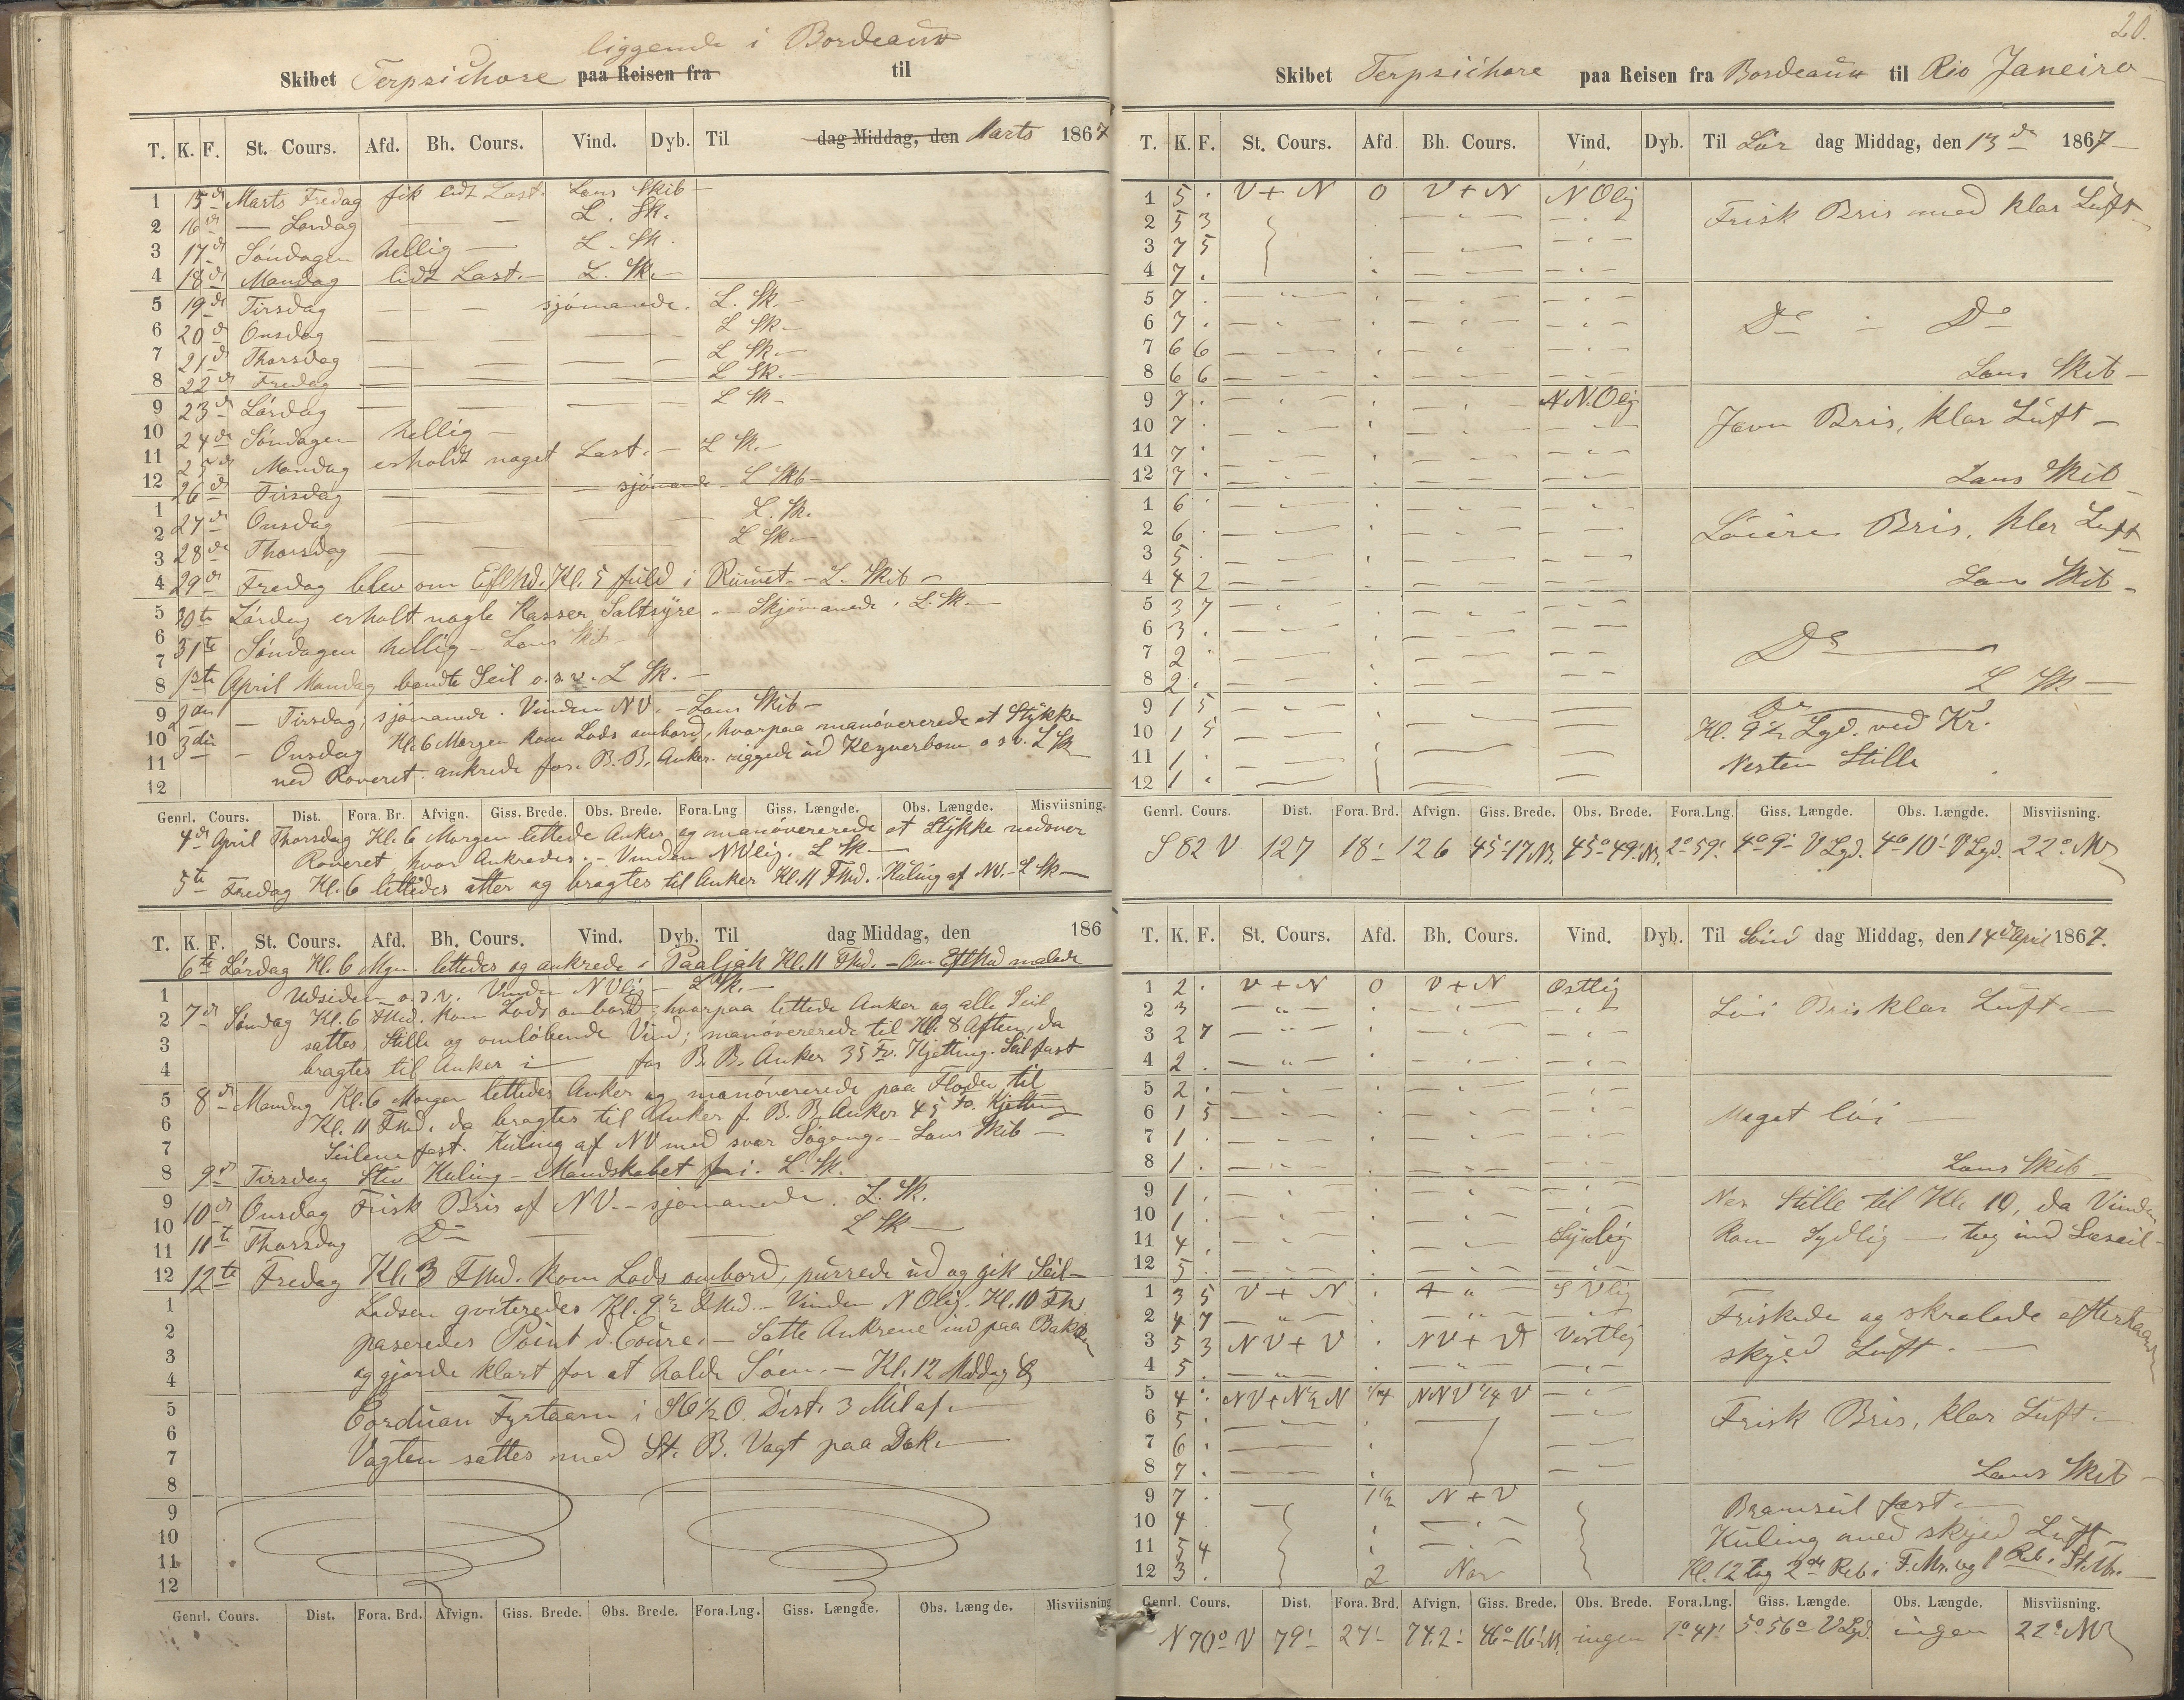 liggende i Bordeaux
Skibet Terpsichore paa Reisen fra til
T. K. F. St. Cours. Afd. Bh. Cours. Vind. Dyb. Til dag Middag, den Marts 1867
1 15de Marts Fredag fik lidt Last. Lens Skib —
2 16de — Lørdag — — L. Sk.
3 17de Søndagen hellig — L. Sk.
4 18de Mandag lidt Last. — L. Sk. —
5 19de Tirsdag — — — sjömanede. L. Sk. —
6 20de Onsdag — — — — L Sk —
7 21de Thorsdag — — — — L Sk. —
8 22de Fredag — — — — L Sk. —
9 23de Lördag — — — — L Sk —
10 24de Söndagen hellig —
11 25de Mandag erholdt noget Last. — L Sk. —
12 26de Tirsdag — — — sjömanede L Skb —
1 27de Onsdag — — — — L. Sk.
2 28de Thorsdag — — — — L Sk. —
3
4 29de Fredag blev om EftMd. Kl. 5 fuld i Rumet. — L. Skib —
5 30te Lördag erholt nogle Kasser Saltsyre. — Skjömanede. L. Sk. —
6 31te Søndagen hellig — Lens Skib
7
8 1ste April Mandag bendte Seil o.s.v. L Sk. —
9 2den — Tirsdag, sjömanede. Vinden NV. — Lens Skib —
10 3die — Onsdag Kl. 6 Morgen kom Lods ombord, hvorpaa manövererede et Stykke
11 ned Roveret. ankrede for. B.B. Anker. riggede ud Klyverbom o s v. L Sk
12
Genrl. Cours. Dist. Fora. Br. Afvign. Giss. Brede. Obs. Brede. Fora.Lng Giss. Længde. Obs. Længde. Misviisning.
4de April Thorsdag Kl. 6 Morgen lettede Anker, og manövererede et Stykke nedover
Roveret, hvor Ankredes. — Vinden NVlig. L Sk. —
5te Fredag Kl. 6 lettedes atter og bragtes til Anker Kl. 11 FMd. Kuling af NV. — L Sk —
T. K. F. St. Cours. Afd. Bh. Cours. Vind. Dyb. Til dag Middag, den 186
6te Lørdag Kl. 6 Mgn. lettedes og ankrede i Paaljak Kl. 11 FMd. — Om EftMd malede
1 Udsiden o.s.v. Vinden NVlig — L Sk. —
2 7de Søndag Kl. 6 FMd. kom Lods ombord; hvorpaa lettede Anker og alle Seil
3 sattes, Stille og omløbende Vind; manövererede til Kl. 8 Aften, da
4 bragtes til Anker i — for B.B. Anker 35 Fv. Kjetting. Seil fast
5 8de Mandag Kl. 6 Morgen lettedes Anker og manövererede paa Floden til
6 Kl. 11 FMd. da bragtes til Anker f. B.B. Anker 45 Fv. Kjetting
7 Seilene fast. Kuling af NV med svær Søgang. — Lens Skib —
8 9de Tirsdag Stiv Kuling — Mandskabet fri. L. Sk.
9 10de Onsdag Frisk Bris af NV. — sjömanede. L. Sk.
10
11 11te Thorsdag Do — — L Sk —
12 12te Fredag Kl. 3 FMd. kom Lods ombord, purrede ud og gik Seil —
1 Lodsen qviteredes Kl. 9½ FMd. — Vinden NOlig. Kl. 10 FMd
2 paseredes Point d. Coure. — Satte Ankrene ind paa Bakken
3 og gjorde klart for at holde Søen. — Kl. 12 Middag
4
5 Corduan Fyrtaarn i SO½O. Dist. 3 Mil af. —
6
7 Vagten sattes med St. B. Vagt paa Dæk. —
8
9
10
11
12
Genrl. Cours. Dist. Fora. Brd. Afvign. Giss. Brede. Obs. Brede. Fora.Lng. Giss. Længde. Obs. Længde. Misviisning
20.
Skibet Terpsichore paa Reisen fra Bordeaux til Rio Janeiro
T. K. F. St. Cours. Afd. Bh. Cours. Vind. Dyb. Til Lør dag Middag, den 13de 1867 —
1 5 . V+N 0 V+N NOlig
2 5 3 Frisk Bris med klar Luft —
3 7 5
4 7 .
5 7 .
6 7 . Do — Do
7 6 6
8 6 6 Lens Skib —
9 7 . NNOlig
10 7 . Jevn Bris, klar Luft —
11 7 .
12 7 . Lens Skib
1 6 .
2 6 . Löiere Bris, klar Luft
3 5 .
4 4 2 Lens Skib —
5 3 7
6 3 .
7 2 . Do —
8 2 . L Sk —
9 1 5 Do
10 1 5 Kl. 9½ Lgd. ved Kr.
11 1 . Nesten Stille
12 1 .
Genrl. Cours. Dist. Fora. Brd. Afvign. Giss. Brede. Obs. Brede. Fora.Lng. Giss. Længde. Obs. Længde. Misviisning.
S 82 V 127 18' 126 45°17'N. 45°49'N. 2°59' 4°9' V Lgd. 4°10' V Lgd. 22° NV
T. K. F. St. Cours. Afd. Bh. Cours. Vind. Dyb. Til Sønd dag Middag, den 14de April 1867.
1 2 . V+N 0 V+N Ostlig
2 3 Löi Bris klar Luft. —
3 2 7
4 2 .
5 2 .
6 1 5 Meget löi —
7 1 .
8 1 . Lens Skib —
9 1 . Nes Stille til Kl. 10, da Vinden
10 1 .
11 4 . Sydlig Kom Sydlig — tog ind Læseil —
12 5 .
1 3 5 V+N . SVlig
2 4 7 Friskede og skralede efterhaanden
3 5 3 NV+V . NV+V Vestlig skyed Luft. —
4 5 .
5 4 . NV+N½N ¼ NNV¼V
6 5 . Frisk Bris, klar Luft. —
7 6 .
8 7 . Lens Skib —
9 7 . 1½ N+V Bramseil fast. —
10 4 . Kuling med skyed Luft —
11 5 4
12 3 . 2 Nor Kl. 12 tog 2de Reb i F. Mr. og 1 Reb i St. Mr. —
Genrl. Cours. Dist. Fora. Brd. Afvign. Giss. Brede. Obs. Brede. Fora.Lng. Giss. Længde. Obs. Længde. Misviisning.
N 70° V 79' 27' 74.2' 46°16'N. ingen 1°47' 5°56' V Lgd. ingen 22° NV